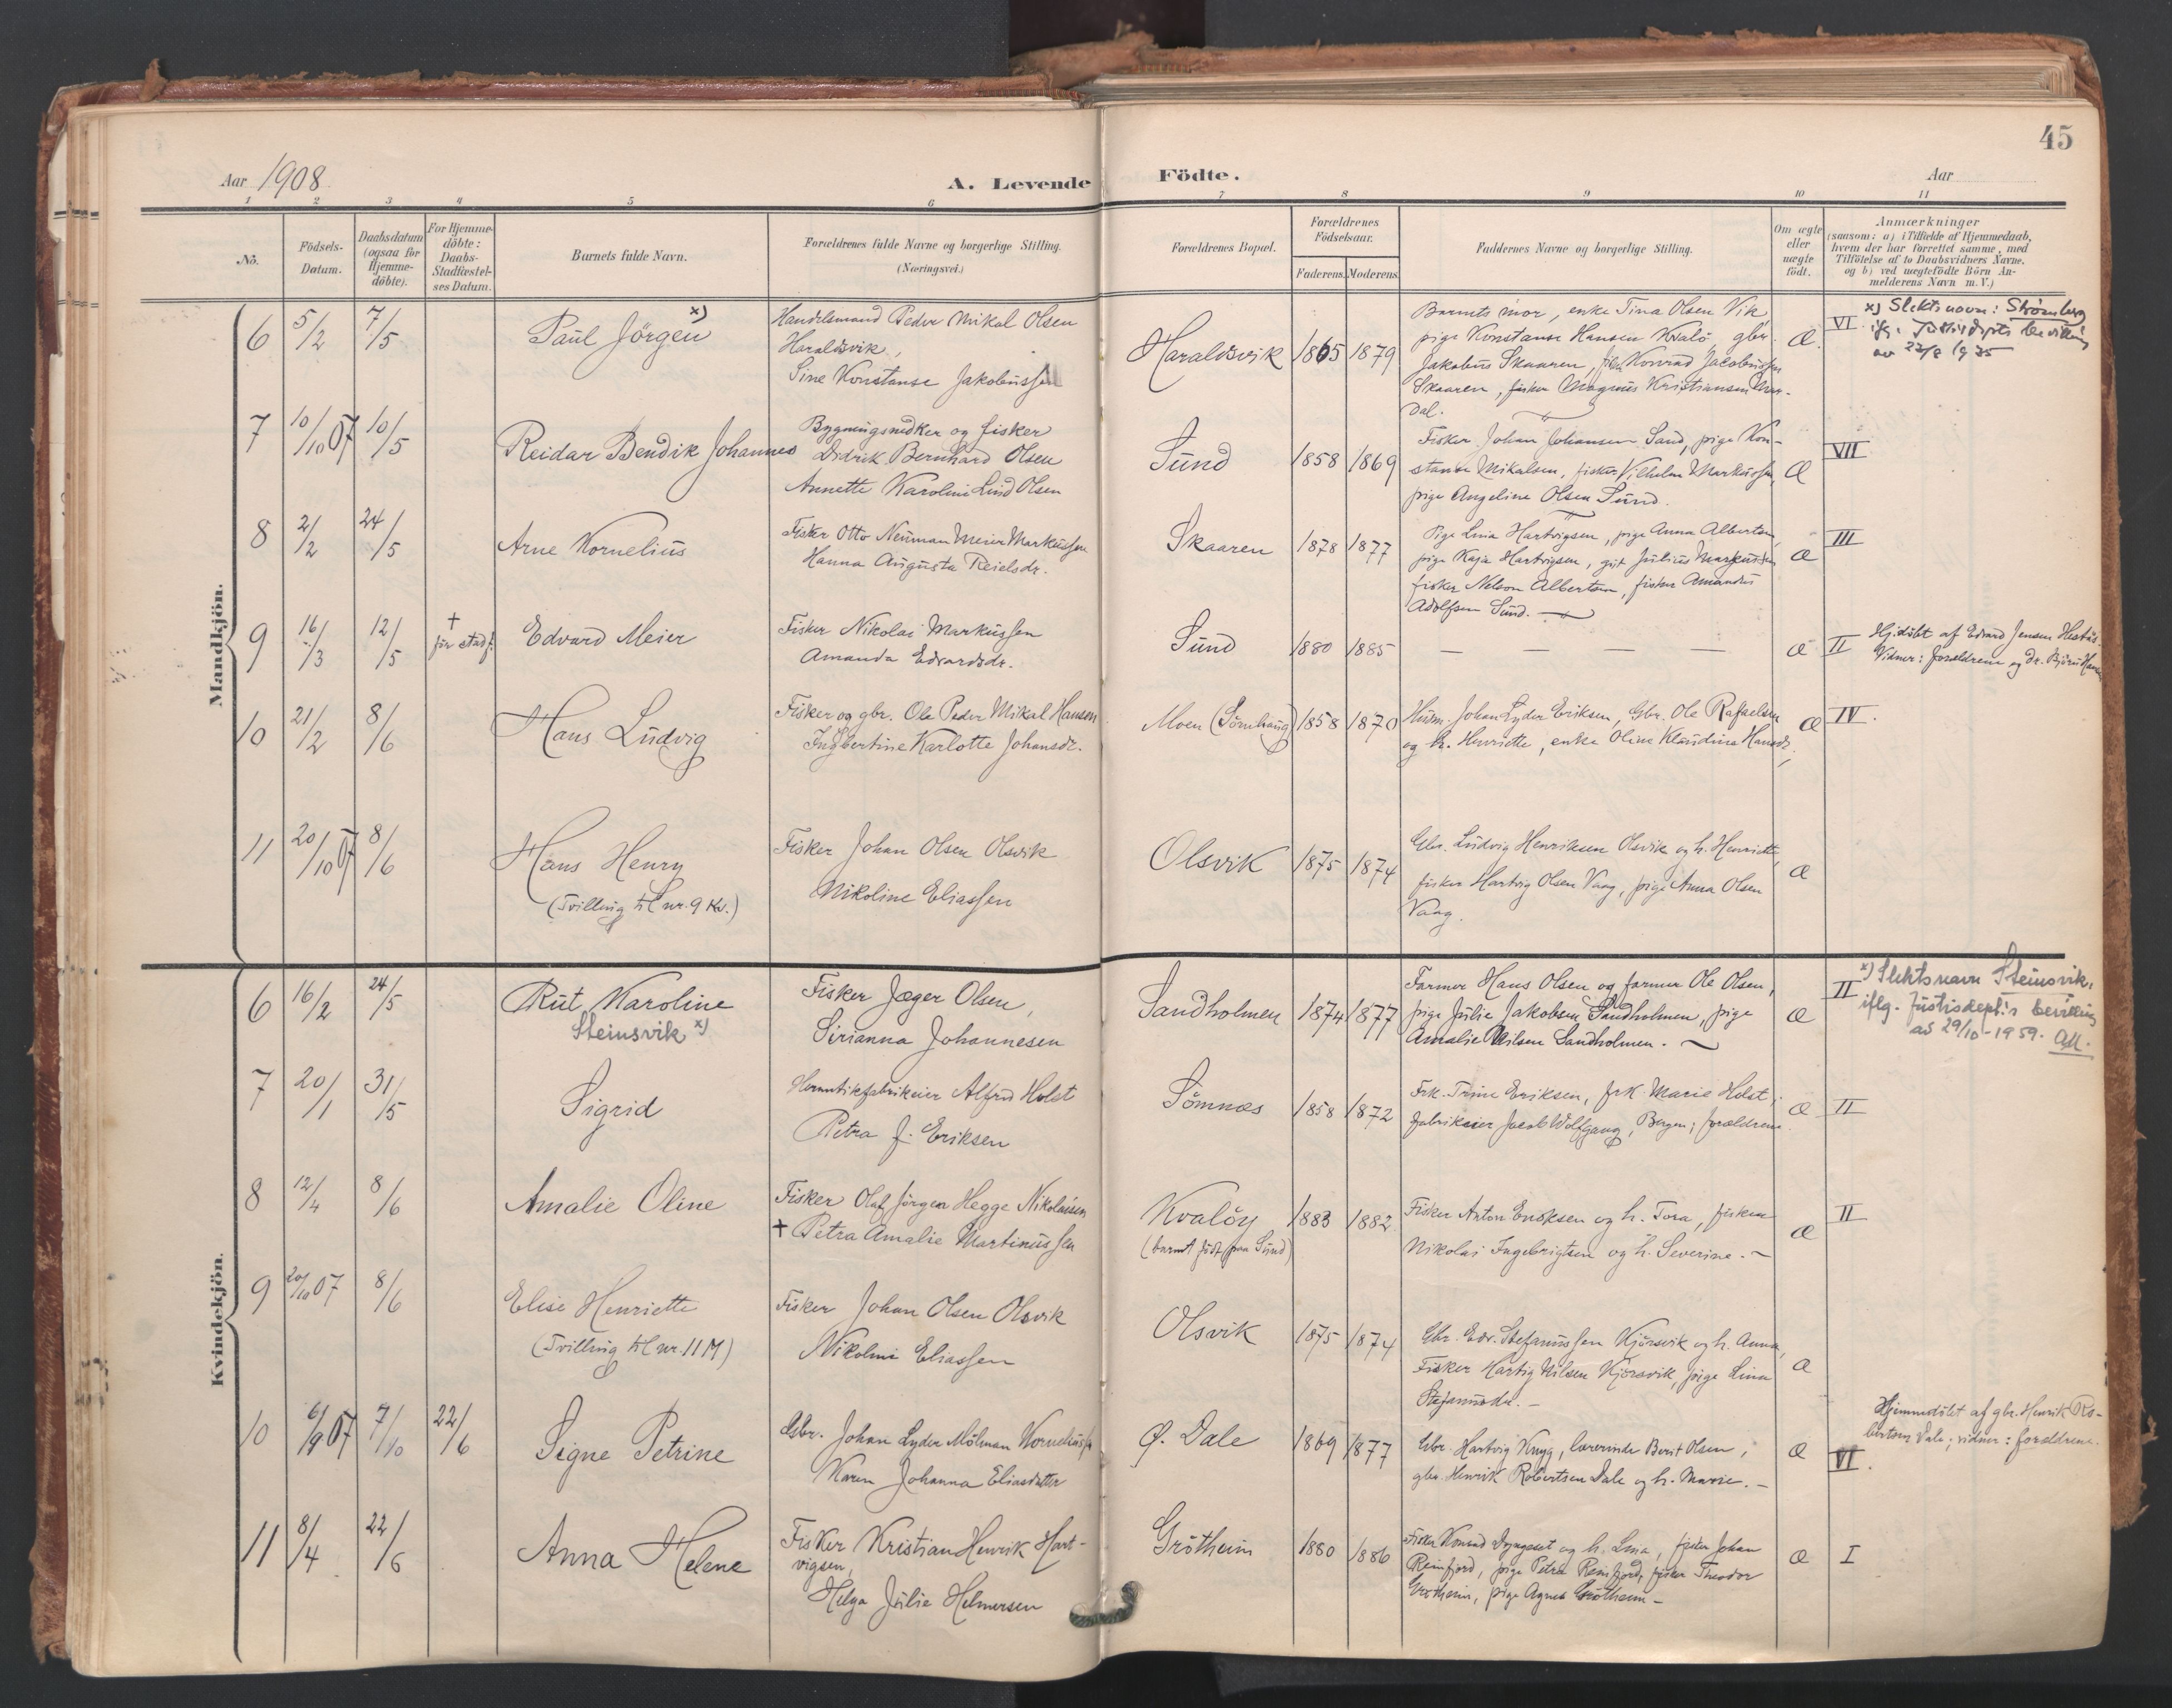 45
Aar 1908
A. Levende Födte.
Aar
1 2 3 4 5 6 7 8 9 10 11
No.
Födsels-Datum.
Daabsdatum (ogsaa for Hjemme-döbte).
For Hjemme-döbte: Daabs-Stadfæstel-ses Datum.
Barnets fulde Navn.
Forældrenes fulde Navne og borgerlige Stilling.
(Næringsvei.)
Forældrenes Bopæl.
Forældrenes Födselsaar.
Faderens. Moderens.
Faddernes Navne og borgerlige Stilling.
Om ægte eller uægte födt.
Anmærkninger
(saasom: a) i Tilfælde af Hjemmedaab,
hvem der har forrettet samme, med
Tilföielse af to Daabsvidners Navne,
og b) ved uægtefödte Börn An-
melderens Navn m. V.)
Mandkjön.
6 5/2 7/5 Paul Jörgen x)
Handelsmand Peder Mikal Olsen
Haraldsvik,
Sine Konstanse Jakobussen
Haraldsvik 1865 1879
Barnets mor, enke Tina Olsen Vik
pige Konstanse Hansen Kvalö, gbr.
Jakobus Skaaren, Konrad Jacobussen
Skaaren, fisker Magnus Kristiansen
dal.
Æ. VI
x) Slektsnavn: Strömberg
ifg. Justisdepts bevilling
av 22/8 1935
7 10/10 07 10/5 Reidar Bendik Johannes
Bygningssnedker og fisker
Didrik Bernhard Olsen
Annette Karoline Lind Olsen
Sund 1858 1869
Fisker Johan Johansen Sand, pige Kon-
stanse Mikalsen, fisker Vilhelm Markussen,
pige Angeline Olsen Sund.
Æ VII
8 2/2 24/5 Arne Kornelius
Fisker Otto Neuman Meier Markussen
Hanna Augusta Reielsdr.
Skaaren 1878 1877
Pige Lina Hartvigsen, pige Anna Albertsen,
pige Kaja Hartvigsen, gift Julius Markussen
fisker Nelson Albertsen, fisker Amandus
Adolfsen Sund.
Æ III
9 16/3 12/5 † för stadf. Edvard Meier
Fisker Nikolai Markussen
Amanda Edvardsdr.
Sund 1880 1885 — — — — Æ II
Hj.döbt af Edvard Jensen
Vidner: forældrene og
10 21/2 8/6 Hans Ludvig
Fisker og gbr. Ole Peder Mikal Hansen
Ingbertine Karlotte Johansdr.
Moen (Sömhaug) 1858 1870
Husm. Johan Lyder Eriksen, Gbr. Ole Rafaelsen
og h. Henriette, enke Oline Klaudine Hansdr.
Æ IV.
11 20/10 07 8/6 Hans Henry
(Tvilling til nr. 9 Kv.)
Fisker Johan Olsen Olsvik
Nikoline Eliassen
Olsvik 1875 1874
Gbr. Ludvig Henriksen Olsvik og h. Henriette,
fisker Hartvig Olsen Vaag, pige Anna Olsen
Vaag.
Æ
Kvindekjön.
6 16/2 24/5 Rut Karoline
Steinsvik x)
Fisker Jæger Olsen,
Sirianna Johannesen
Sandholmen 1874 1877
Farmer Hans Olsen og farmer Ole Olsen,
pige Julie Jakobsen Sandholmen, pige
Amalie Nilsen Sandholmen. —
Æ II
x) Slektsnavn Steinsvik,
iflg. Justisdept.'s bevilling
av 29/10-1959.
7 20/1 31/5 Sigrid
Hermetikfabrikeier Alfred Holst
Petra J. Eriksen
Sömnæs 1858 1872
Frk. Trine Eriksen, frk. Marie Holst,
fabrikeier Jacob Wolfgang, Bergen; forældrene.
Æ II
8 12/4 8/6 Amalie Oline
Fisker Olaf Jörgen Hegge Nikolaisen
† Petra Amalie Martinussen
Kvalöy
(barnet födt paa Sund)
1883 1882
Fisker Anton Eriksen og h. Tora, fisker
Nikolai Ingebrigtsen og h. Severine. —
Æ II
9 20/10 07 8/6 Elise Henriette
(Tvilling til nr. 11 M)
Fisker Johan Olsen Olsvik
Nikoline Eliassen
Olsvik 1875 1874
Gbr. Edv. Stefanussen Kjörsvik og h. Anna,
Fisker Hartvig Nilsen Kjörsvik, pige Lina
Stefanusdr. —
Æ
10 6/9 07 7/10 22/6 Signe Petrine
Gbr. Johan Lyder Mölman Korneliussen
Karen Johanna Eliasdatter
Ø. Dale 1869 1877
Gbr. Hartvig Krogg, lærerinde Berit Olsen,
gbr. Henrik Robertsen Dale og h. Marie. —
Æ VI.
Hjemmedöbt af gbr. Henrik Ro-
bertsen Dale; vidner: forældrene.
11 8/4 22/6 Anna Helene
Fisker Kristian Henrik Hart-
vigsen,
Helga Julie Helmersen
Grötheim 1880 1886
Fisker Konrad Dypgeset og h. Lina, fisker Johan
Reinfjord, pige Petra Reinfjord, fisker Theodor
Grötheim, pige Agnes Grötheim —
Æ I